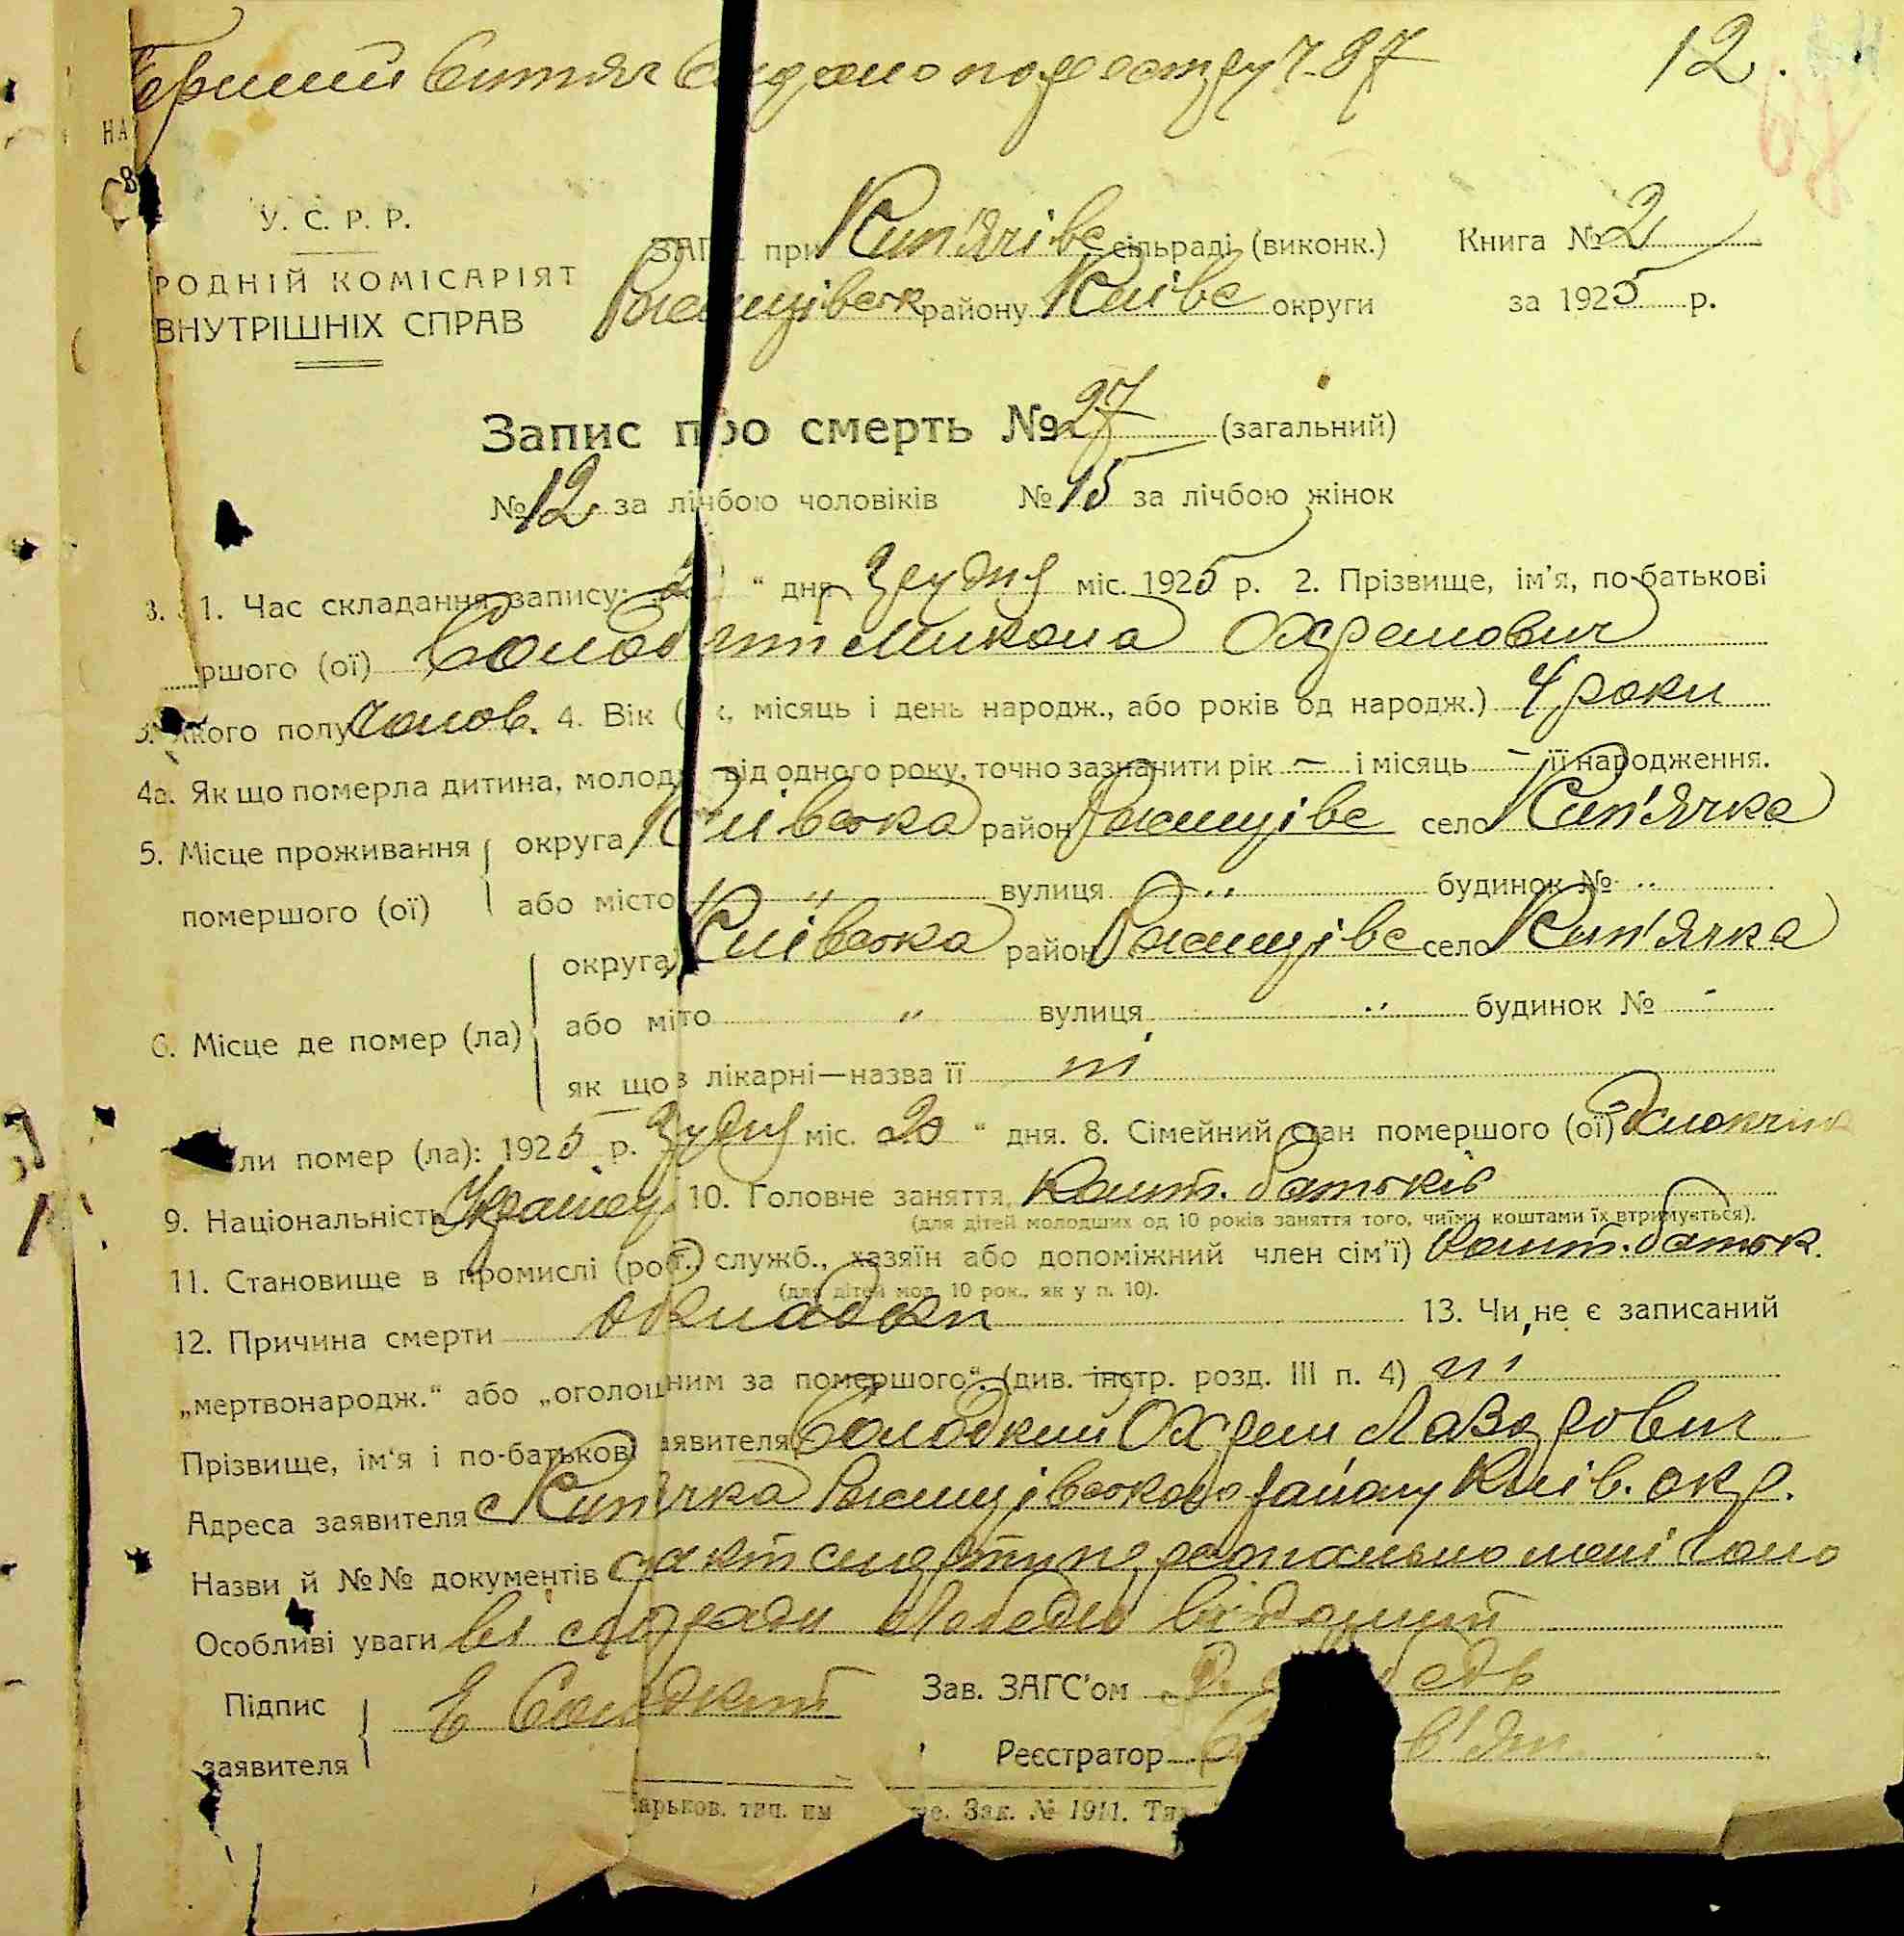 витяг видано по реєстру Ч. 87
12.
НА
В
У. С. Р. Р.
РОДНІЙ КОМІСАРІЯТ
ВНУТРІШНІХ СПРАВ
ЗАГС при Кип'ячівс сільраді (виконк.) Книга № 2
Ржищівськ району Київс округи за 1925 р.
Запис про смерть № 27 (загальний)
№ 12 за лічбою чоловіків № 15 за лічбою жінок
1. Час складання запису: " дня грудня міс. 1925 р. 2. Прізвище, ім'я, по-батькові
ршого (ої) Микола Охремович
3. Якого полу чолов. 4. Вік (рік, місяць і день народж., або років од народж.) 4 роки
4а. Як що померла дитина, молод. від одного року, точно зазначити рік — і місяць — її народження.
5. Місце проживання округа Київська район Ржищівс село Кип'ячка
помершого (ої) або місто " вулиця " будинок № "
округа Київська район Ржищівс село Кип'ячка
6. Місце де помер (ла) або міто " вулиця " будинок № "
як що в лікарні—назва її ні
ли помер (ла): 1925 р. Грудня міс. 20 " дня. 8. Сімейний стан помершого (ої)
9. Національність Українец 10. Головне заняття кошт. батьків
(для дітей молодших од 10 років заняття того, чиїми коштами їх втримується).
11. Становище в промислі (роб., служб., хазяїн або допоміжний член сім'ї) кошт. батьк.
(для дітей мол. 10 рок., як у п. 10).
12. Причина смерти 13. Чи не є записаний
„мертвонародж." або „оголошним за помершого". (див. інстр. розд. III п. 4) ні
Прізвище, ім'я і по-батькові заявителя Солодкий Охрем Лазарович
Адреса заявителя с Кип'ячка Ржищівського району Київ. окр.
Назви й №№ документів факт смерти
Особливі уваги
Підпис
заявителя
Зав. ЗАГС'ом
Реєстратор
арьков. тип. Зак. № 1911.